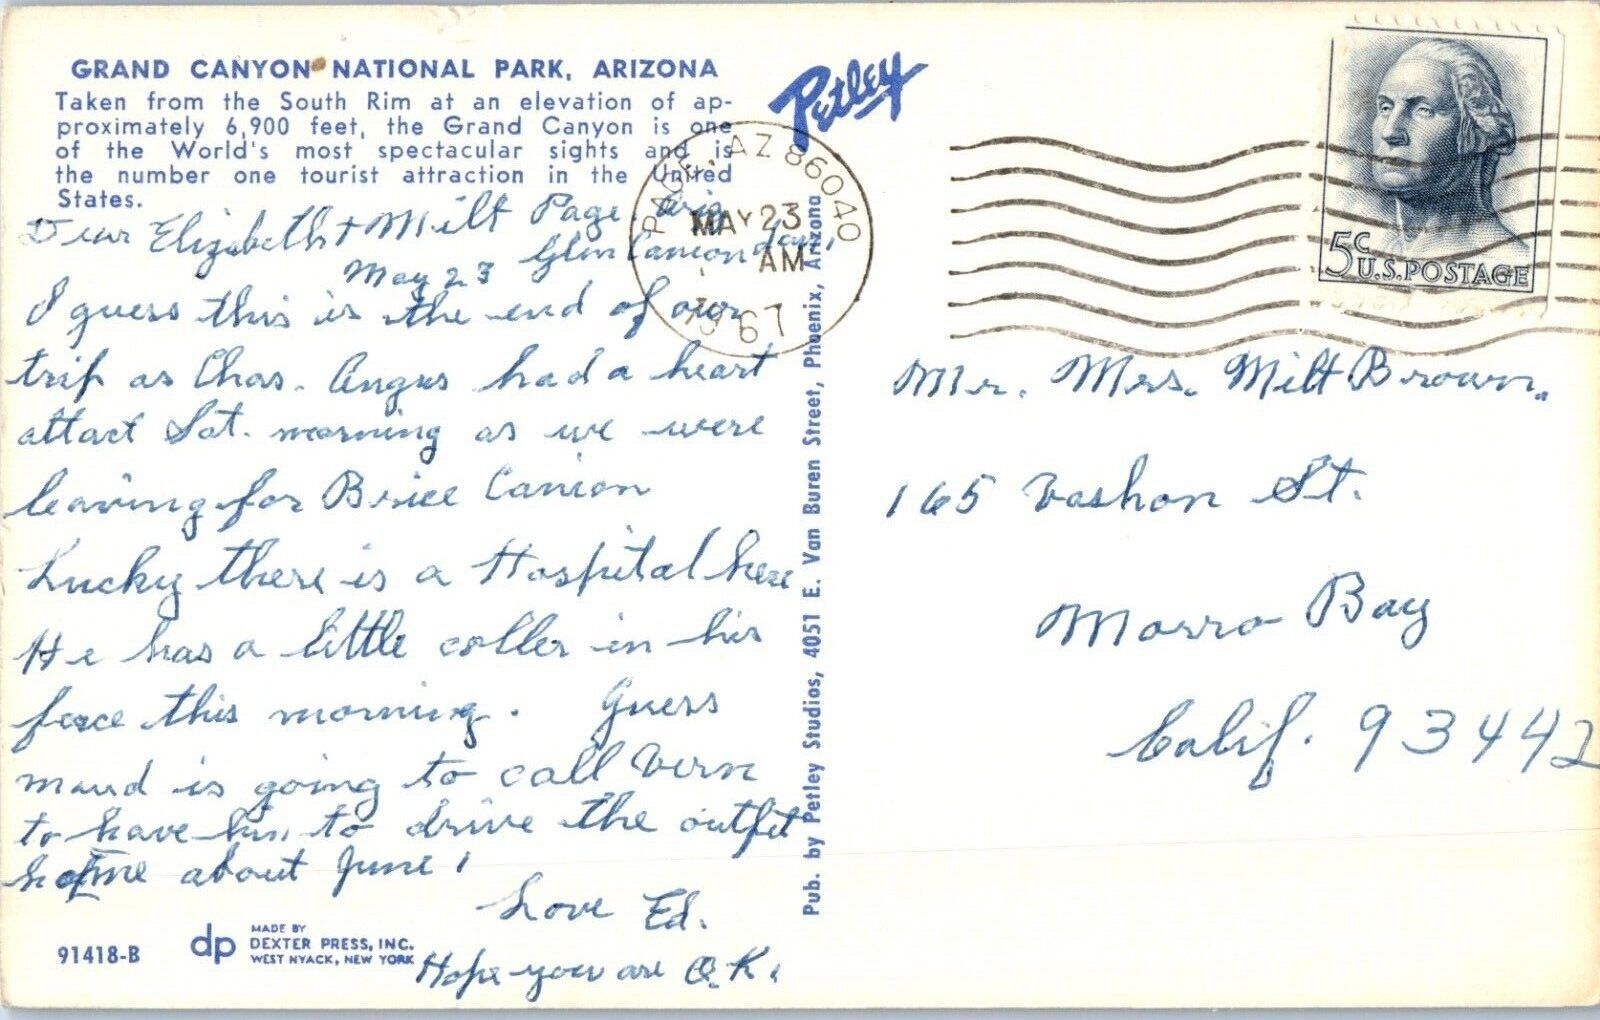 GRAND CANYON NATIONAL PARK, ARIZONA
Taken from the South Rim at an elevation of ap-
proximately 6,900 feet, the Grand Canyon is one
of the World's most spectacular sights and is
the number one tourist attraction in the United
States.
Petley
PAGE, AZ 86040
MAY 23
AM
1967
5c U.S. POSTAGE
Dear Elizabeth + Milt Page. Aris
Glen Canion dam,
May 23
I guess this is the end of our
trip as Chas. Angus had a heart
attact Sat. morning as we were
leaving for Brice Canion
Lucky there is a Hospital here
He has a little coller in his
face this morning. Guess
maud is going to call Vern
to have him to drive the outfit
home about June 1
Love Ed.
Hope you are O.K.
Mr. Mrs. Milt Brown.
165 Vashon St.
Morro Bay
Calif. 93442
Pub. by Petley Studios, 4051 E. Van Buren Street, Phoenix, Arizona
91418-B
dp
MADE BY
DEXTER PRESS, INC.
WEST NYACK, NEW YORK